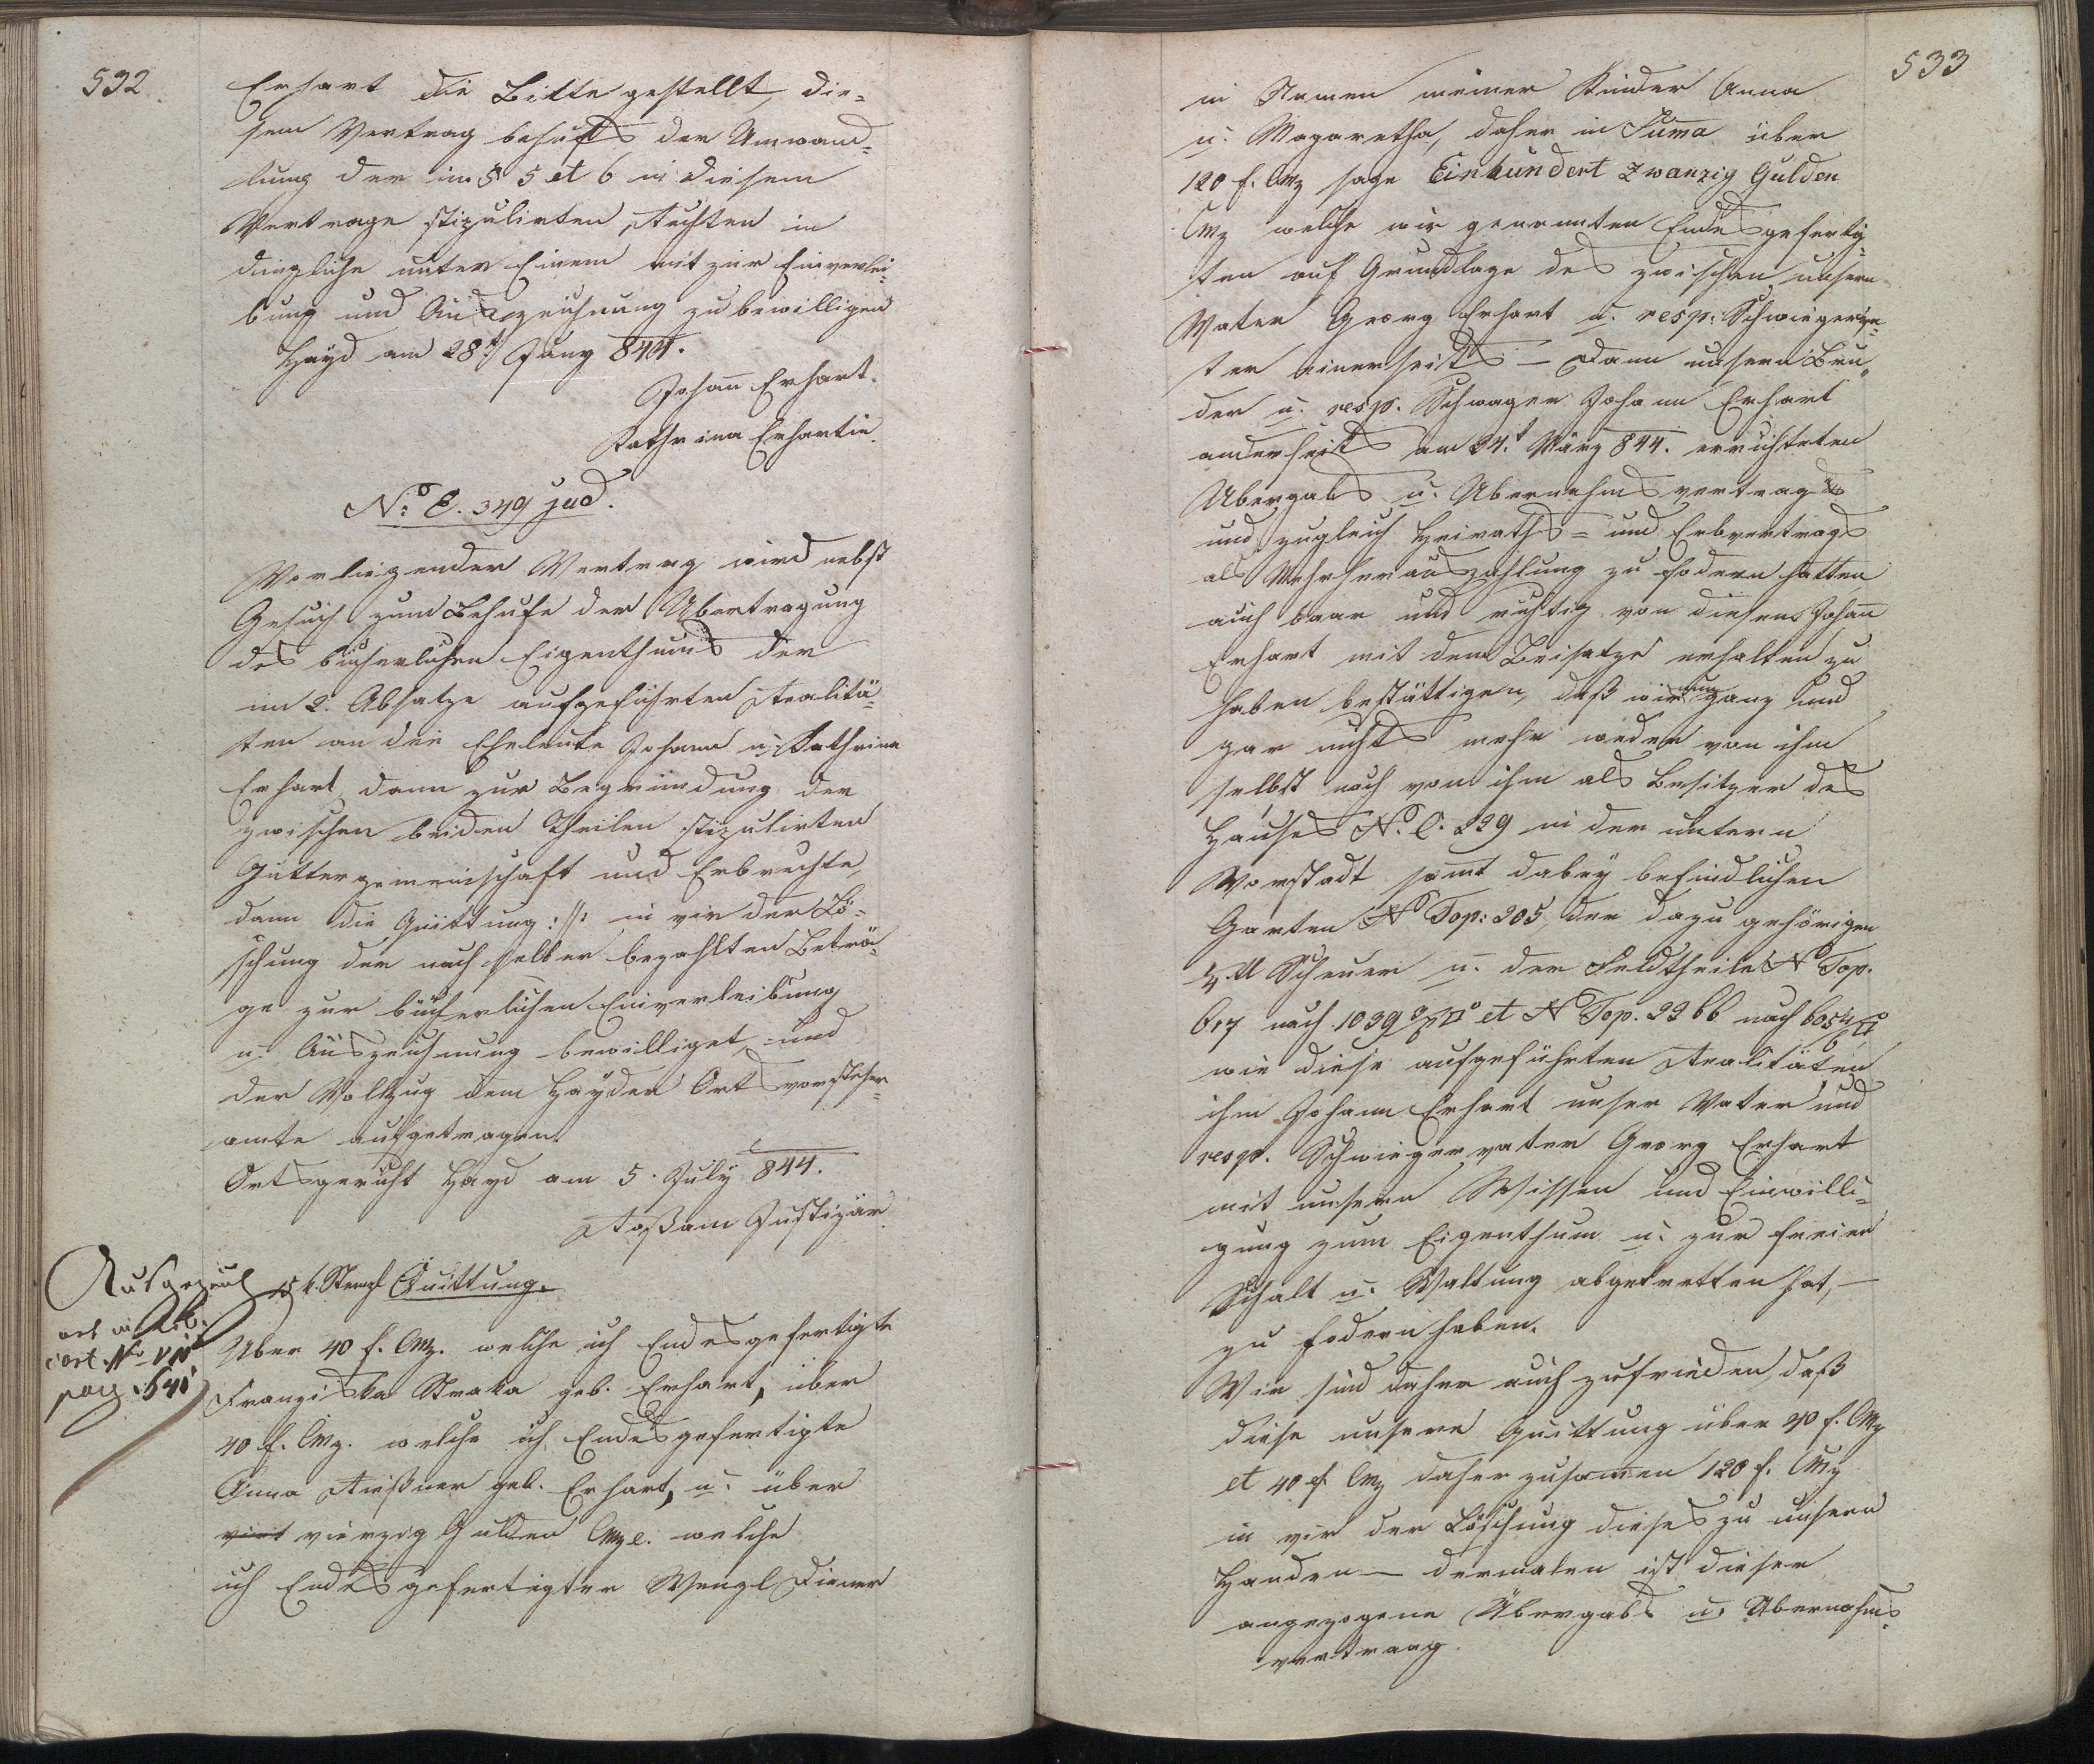 532
Erhart die Bitte gestellt, die-
sem Vertrag behufs der Umwand-
lung der im § 5 et 6 in diesem
Vertrage stipulirten Rechten in
dingliche unter Einem mit zur Einverlei-
bung und Auszeichnung zu bewilligen
Hayd am 28t. Juny 844.
Johann Erhart.
Kathrina Erhartin.
No. E. 349 jud.
Vorliegender Vertrag wird nebst
Gesuch zum Behufe der Übertragung
des bücherlichen Eigenthums der
im 2. Absatze aufgeführten Realitä-
ten an die Eheleute Johann u. Kathrina
Erhart, dann zur Begründung der
zwischen beiden Theilen stipulirten
Güttergemeinschaft und Erbrechte,
dann die Quittung :/: in vim der Lö-
schung der nach selber bezahlten Beträ-
ge zur bücherlichen Einverleibung
u. Auszeichnung bewilliget, und
der Vollzug dem Hayder Ortsvorsteher-
amte aufgetragen.
Ortsgericht Hayd am 5. July 844.
Justiziär
Ausgezeich
net in Lib.
cont. No VII
pag. 541
15 k. Stempl Quittung.
Über 40 f. CMz. welche ich Endesgefertigte
Franziska Straka geb. Erhart, über
40 f. CMz. welche ich Endesgefertigte
Anna Rießner geb. Erhart, u. über
viert vierzig Gulden CMze. welche
ich Endesgefertigter Wenzl Diener
533
in Namen meiner Kinder Anna
u. Magaretha, daher in Suma über
120 f. CMz sage Einhundert Zwanzig Gulden
CMz welche wir genannten Endesgefertig-
ten auf Grundlage des zwischen unsern
Vater Georg Erhart u. resp. Schwiegerva-
ter einerseits – dann unsern Bru-
der u. resp. Schwager Johann Erhart
anderseits am 24.t März 844. errichteten
Übergabs u. Übernahmsvertrag
und zugleich Heiraths- und Erbvertrags
als Mehrherauszahlung zu fodern hatten
auch baar und richtig von diesem Johan
Erhart mit dem Beisatze erhalten zu
haben bestättigen, daß wir nun ganz und
gar nichts mehr weder von ihm
selbst noch von ihm als Besitzer des
Hauses No. C. 239 in der untern
Vorstadt samt dabey befindlichen
Garten No Top: 205, der dazu gehörigen
Scheuer u. der Feldtheile No Top.
nach 1039 et No Top. 22 bb nach 605
wie diese aufgeführten Realitäten
ihm Johann Erhart unser Vater und
resp. Schwiegervater Georg Erhart
mit unsern Wissen und Einwilli-
gung zum Eigenthum u. zur freien
Schalt u. Waltung abgetretten hat, –
zu fodern haben.
Wir sind daher auch zufrieden, daß
diese unsere Quittung über 40 f. CMz
et 40 f. CMz daher zusamen 120 f. CMz
in vim der Löschung dieses zu unsern
Handen – dermalen ist dieser
angezogene Übergabs u. Übernahms-
vertraag